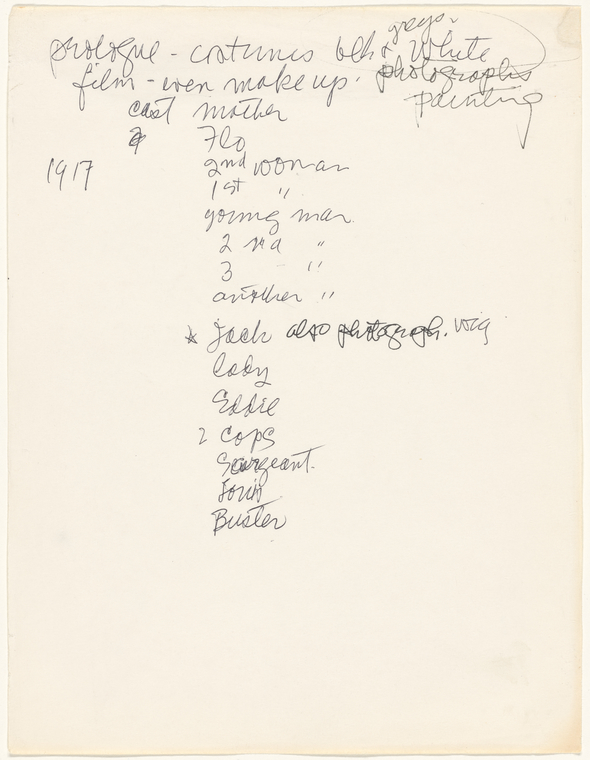 greys.
prologue - costumes blk & White
film - even make up. photographs
painting
cast mother
Flo
1917 2nd woman
1st "
young man
2nd "
3 - "
another "
* Jack also photograph. wig
Eddie
2 Cops
Sargeant.
Buster